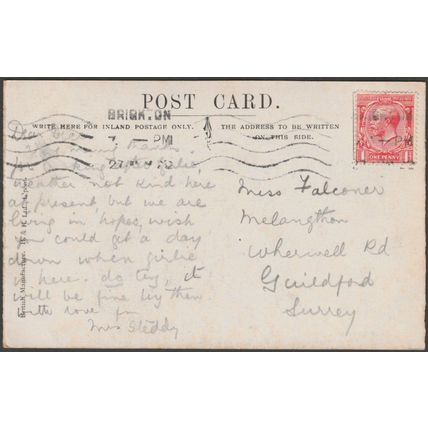 POST CARD.
WRITE HERE FOR INLAND POSTAGE ONLY.
THE ADDRESS TO BE WRITTEN
ON THIS SIDE.
BRIGHTON
PM
ONE PENNY
Dear
many thanks
weather not kind here
at present but we are
living in hopes, wish
you could get a day
down when girlie
is here. do try, it
will be fine by then
with love fm
Mrs Steddy
Miss Falconer
Melangthon
Wherwell Rd
Guildford
Surrey
British Manufacture.